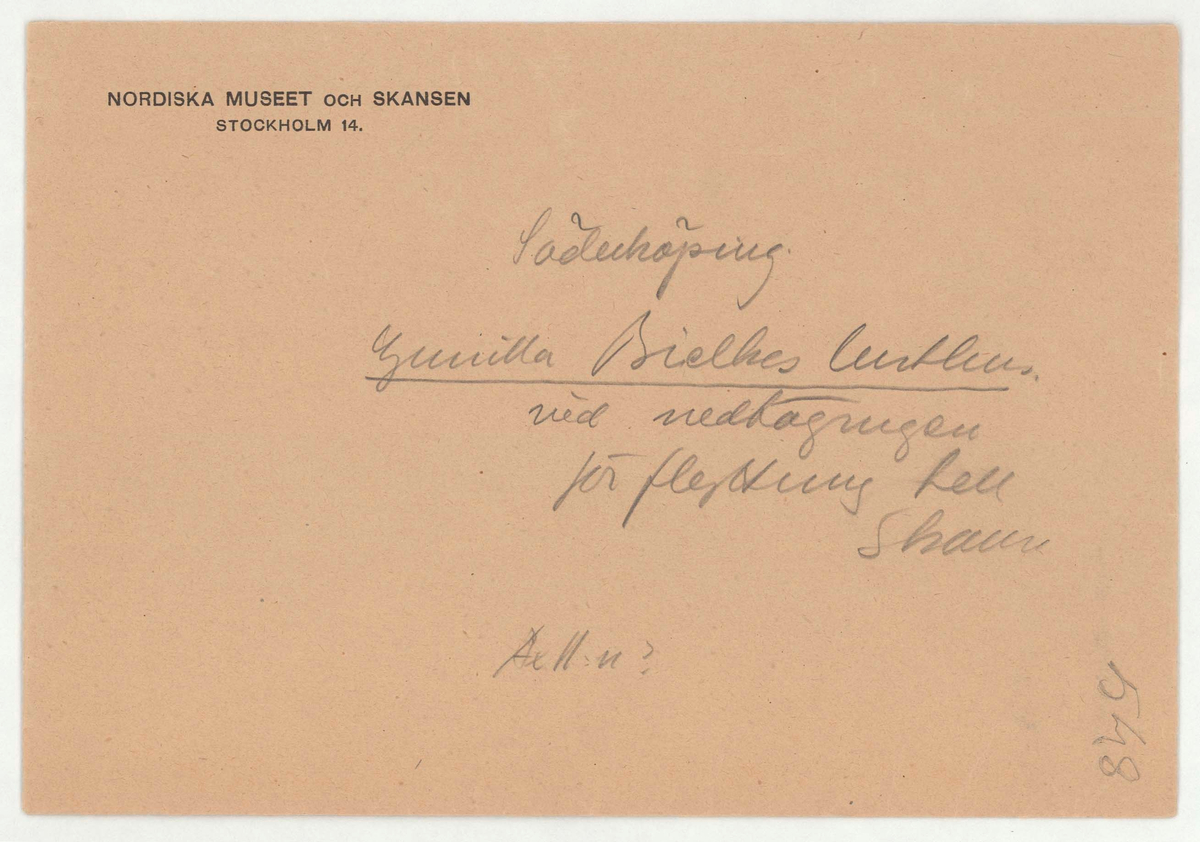 NORDISKA MUSEET OCH SKANSEN
STOCKHOLM 14.
Söderköping.
Gunilla Bielkes lusthus.
vid nedtagningen
för flyttning till
Skansen